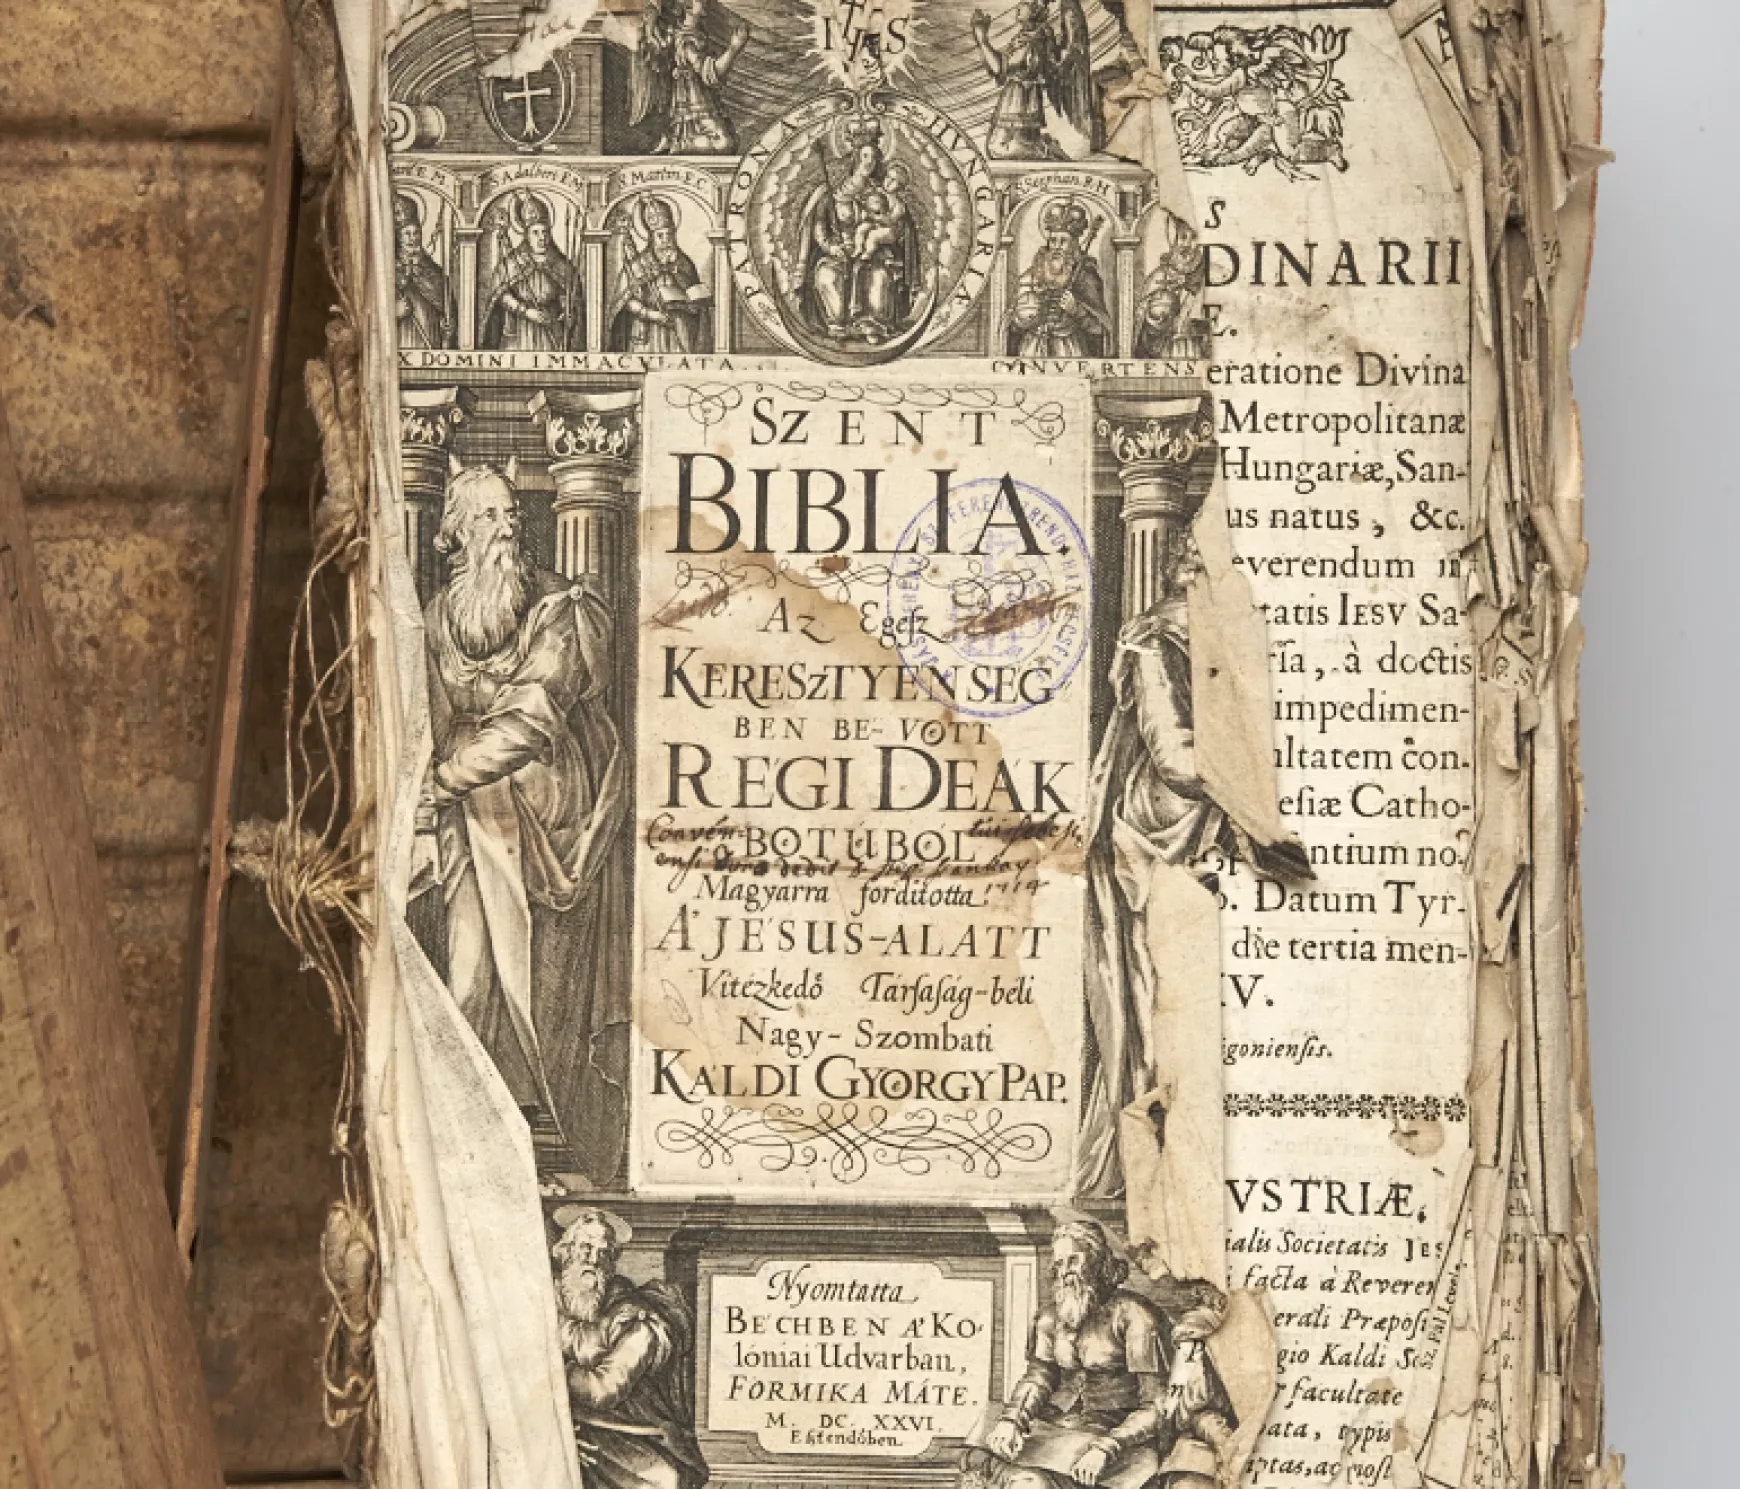 IHS
PATRONA HUNGARIÆ
S Adalbert E M
S Martin E C
S Stephan R H
X DOMINI IMMACVLATA
CONVERTENS
SZENT
BIBLIA.
Az Egesz
KERESZTYENSEG
BEN BE-VÖTT
REGI DEAK
BOTÚBÓL
Magyarra forditotta
A' JESUS-ALATT
Vitézkedő Társaság-béli
Nagy-Szombati
KALDI GYÖRGY PAP.
Nyomtatta
BÉCHBEN A' KO-
lóniai Udvarban,
FORMIKA MÁTE.
M. DC. XXVI.
Esztendőben.
S
DINARII
E.
eratione Divina
Metropolitanæ
Hungariæ, San-
us natus, &c.
everendum in
tatis IESV Sa-
ria, à doctis
impedimen-
ultatem con-
esiæ Catho-
ntium no
. Datum Tyr-
die tertia men-
V.
goniensis.
VSTRIÆ,
ialis Societatis JES
facta à Reveren
erali Præposi
gio Kaldi So
r facultate
ata, typis
iptas, ac post